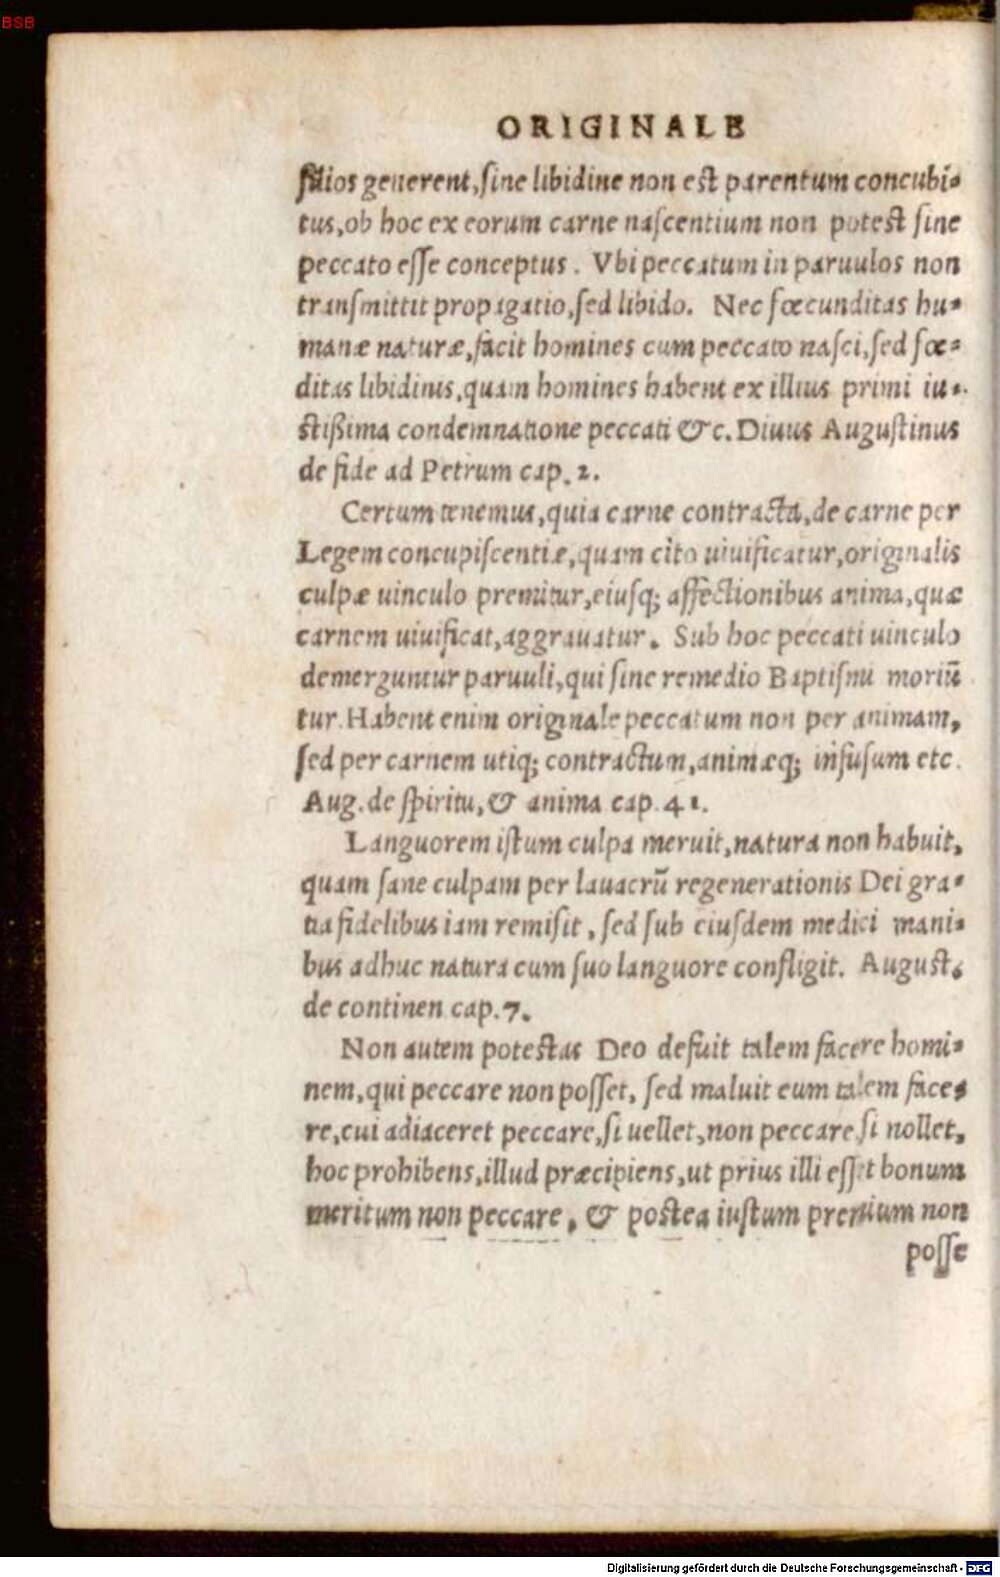 BSB
ORIGINALE
filios generent, sine libidine non est parentum concubi-
tus, ob hoc ex eorum carne nascentium non potest sine
peccato esse conceptus. Vbi peccatum in paruulos non
transmittit propagatio, sed libido. Nec fœcunditas hu-
manæ naturæ, facit homines cum peccato nasci, sed fœ-
ditas libidinis, quam homines habent ex illius primi iu-
stißima condemnatione peccati &c. Diuus Augustinus
de fide ad Petrum cap. 2.
Certum tenemus, quia carne contracta, de carne per
Legem concupiscentiæ, quam cito uiuificatur, originalis
culpæ uinculo premitur, eiusq; affectionibus anima, quæ
carnem uiuificat, aggrauatur. Sub hoc peccati uinculo
demerguntur paruuli, qui sine remedio Baptismi moriū
tur. Habent enim originale peccatum non per animam,
sed per carnem utiq; contractum, animæq; infusum etc.
Aug. de spiritu, & anima cap. 41.
Languorem istum culpa meruit, natura non habuit,
quam sane culpam per lauacrū regenerationis Dei gra-
tia fidelibus iam remisit, sed sub eiusdem medici mani-
bus adhuc natura cum suo languore confligit. August.
de continen cap. 7.
Non autem potestas Deo defuit talem facere homi-
nem, qui peccare non posset, sed maluit eum talem face-
re, cui adiaceret peccare, si uellet, non peccare si nollet,
hoc prohibens, illud præcipiens, ut prius illi esset bonum
meritum non peccare, & postea iustum premium non
posse
Digitalisierung gefördert durch die Deutsche Forschungsgemeinschaft - DFG